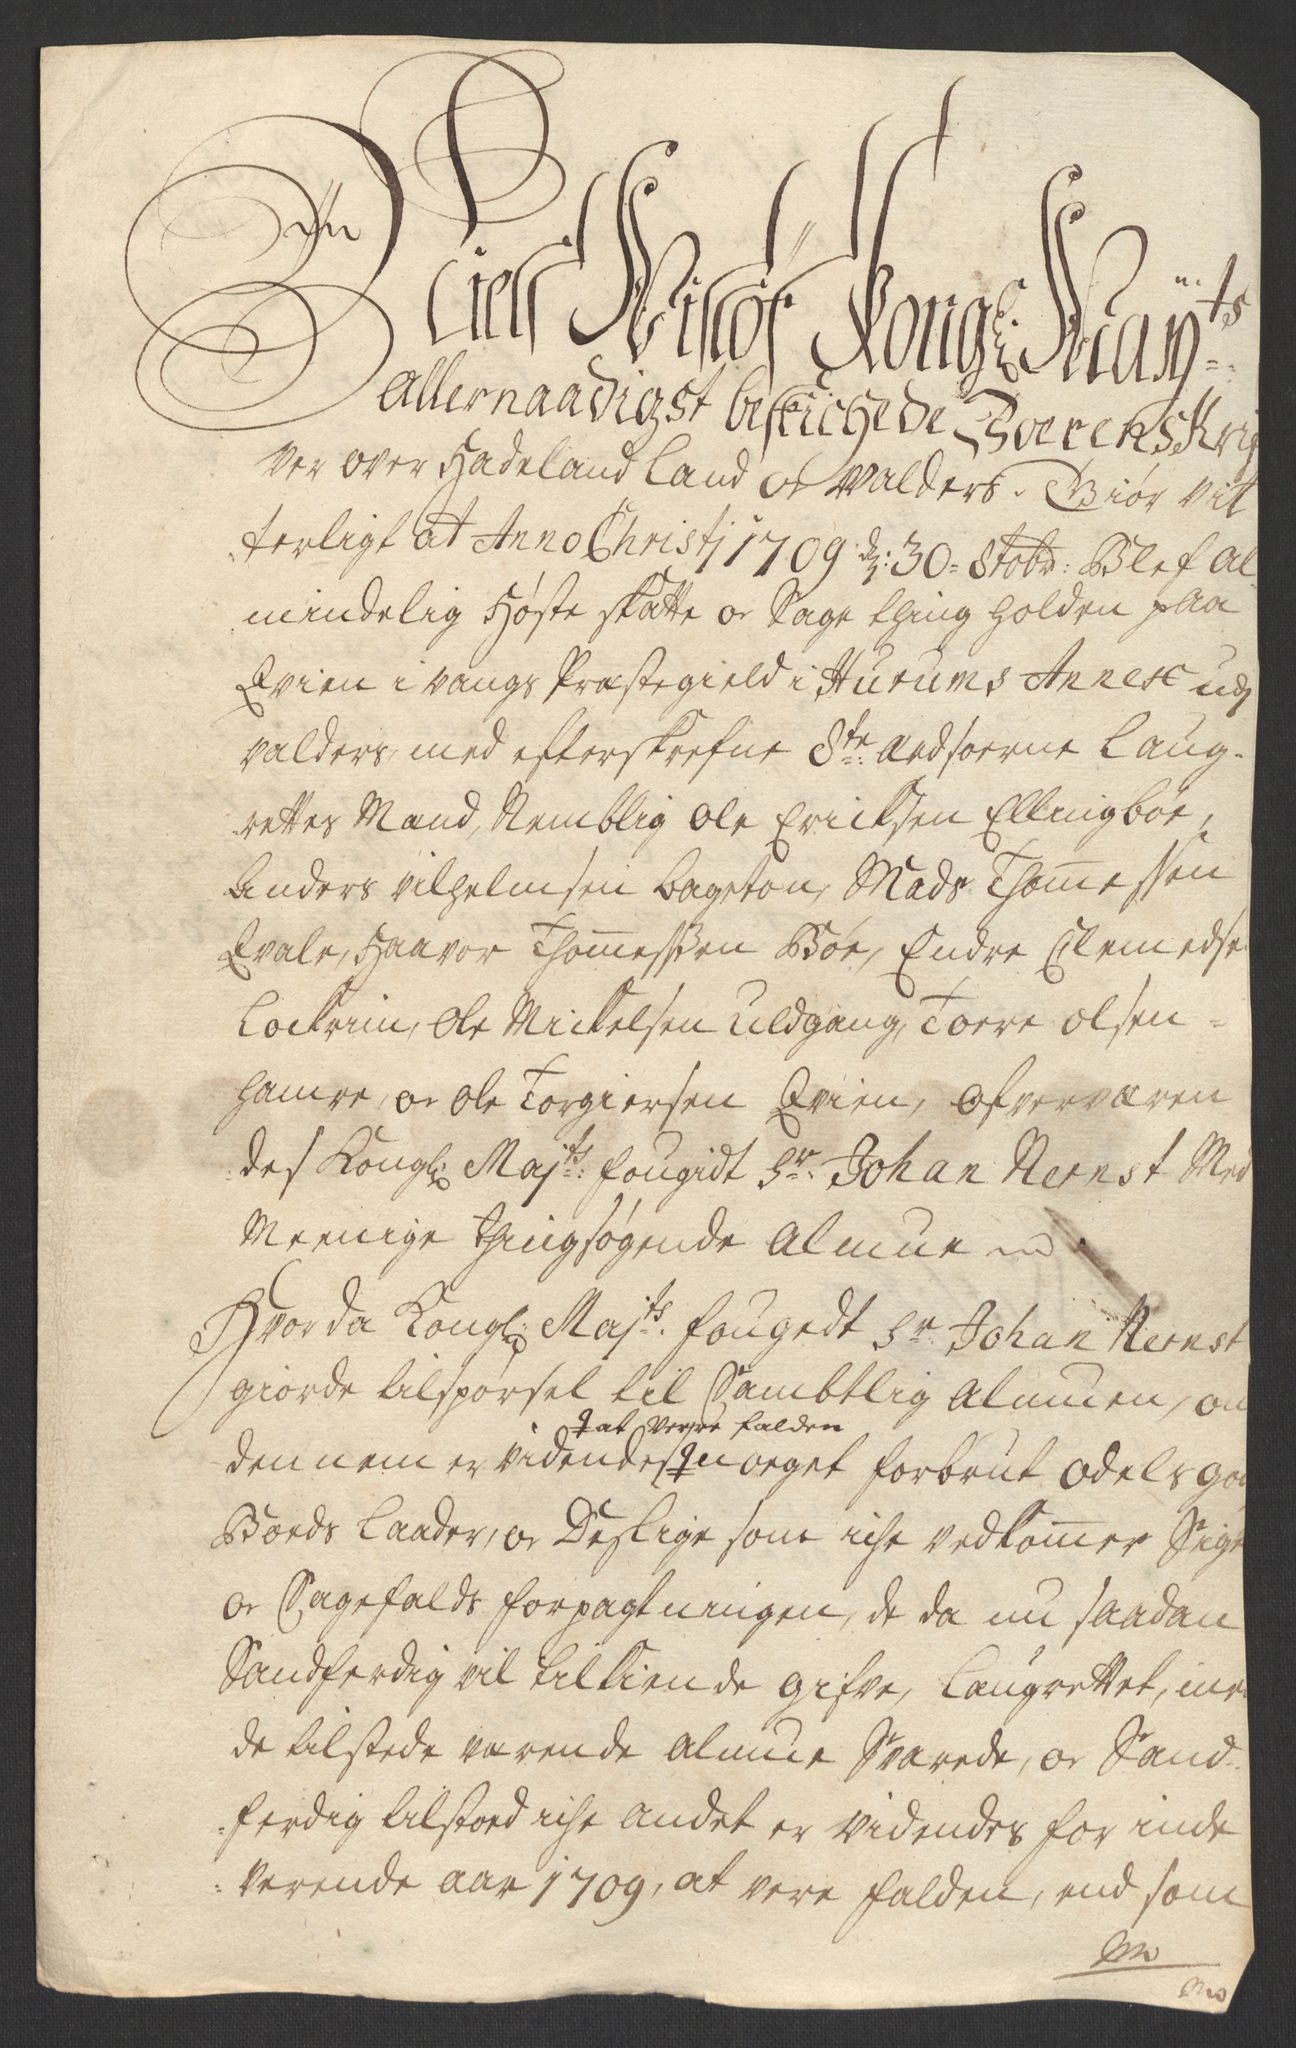 Niels Nisøe Kongl: Maÿ:ts
allernaadigst beskichede Soerenskri
ver over Hadeland Land oc Walders. Giør vit
terligt at Anno Christj 1709 d: 30 = 8tobr: Blef al
mindelig Høste skatte oc Sage thing holden paa
Qvien i vangs Præstegield i Hurums Annex udj
valders, med efterskrefne 8te: Aedsoerne Laug-
rettes Mænd, Nemblig Ole Ericksen Ellingboe,
Anders vilhelmsen Bagston, Mads Thommessen
Qvale, Haavor Thommessen Bøe, Endre Clemedse
Lockrim, Ole Mickelsen Uldgang, Toere olsen =
hamre, oc Ole Torgiersen Qvien, ofververen
des Kongl: Maj:ts: fougidt Sr: Johan Nernst Med
Meenige thingsøgende Almue
Hvor da Kongl: Maj:ts: fougedt Sr: Johan Nernst
giorde tilspørsel til Sambtlig Almuen, om
at verre falden
dennem er videndes noeget forbrut odels god
Boeds Laader, oc Deslige som iche vedkommer Sigt
oc Sagefalds forpagtningen, de da nu saadan
Sandferdig vil tilkiende gifve, Laugrettet, med
de tilstede værende Almue Svarede, oc Sand-
ferdig tilstoed iche andet er videndes for inde
verende aar 1709, at vere falden, end som